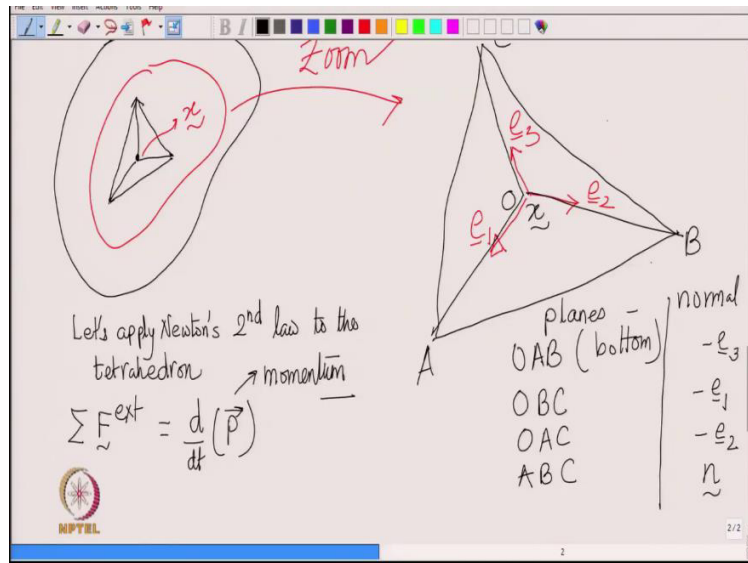 File Edit View Insert Actions Tools Help
B I
Zoom
C
x
e3
O
x
e2
e1
B
A
Let's apply Newton's 2nd law to the
tetrahedron
momentum
Σ F^ext = d/dt (P)
planes
normal
OAB (bottom)
-e3
OBC
-e1
OAC
-e2
ABC
n
NPTEL
2/2
2